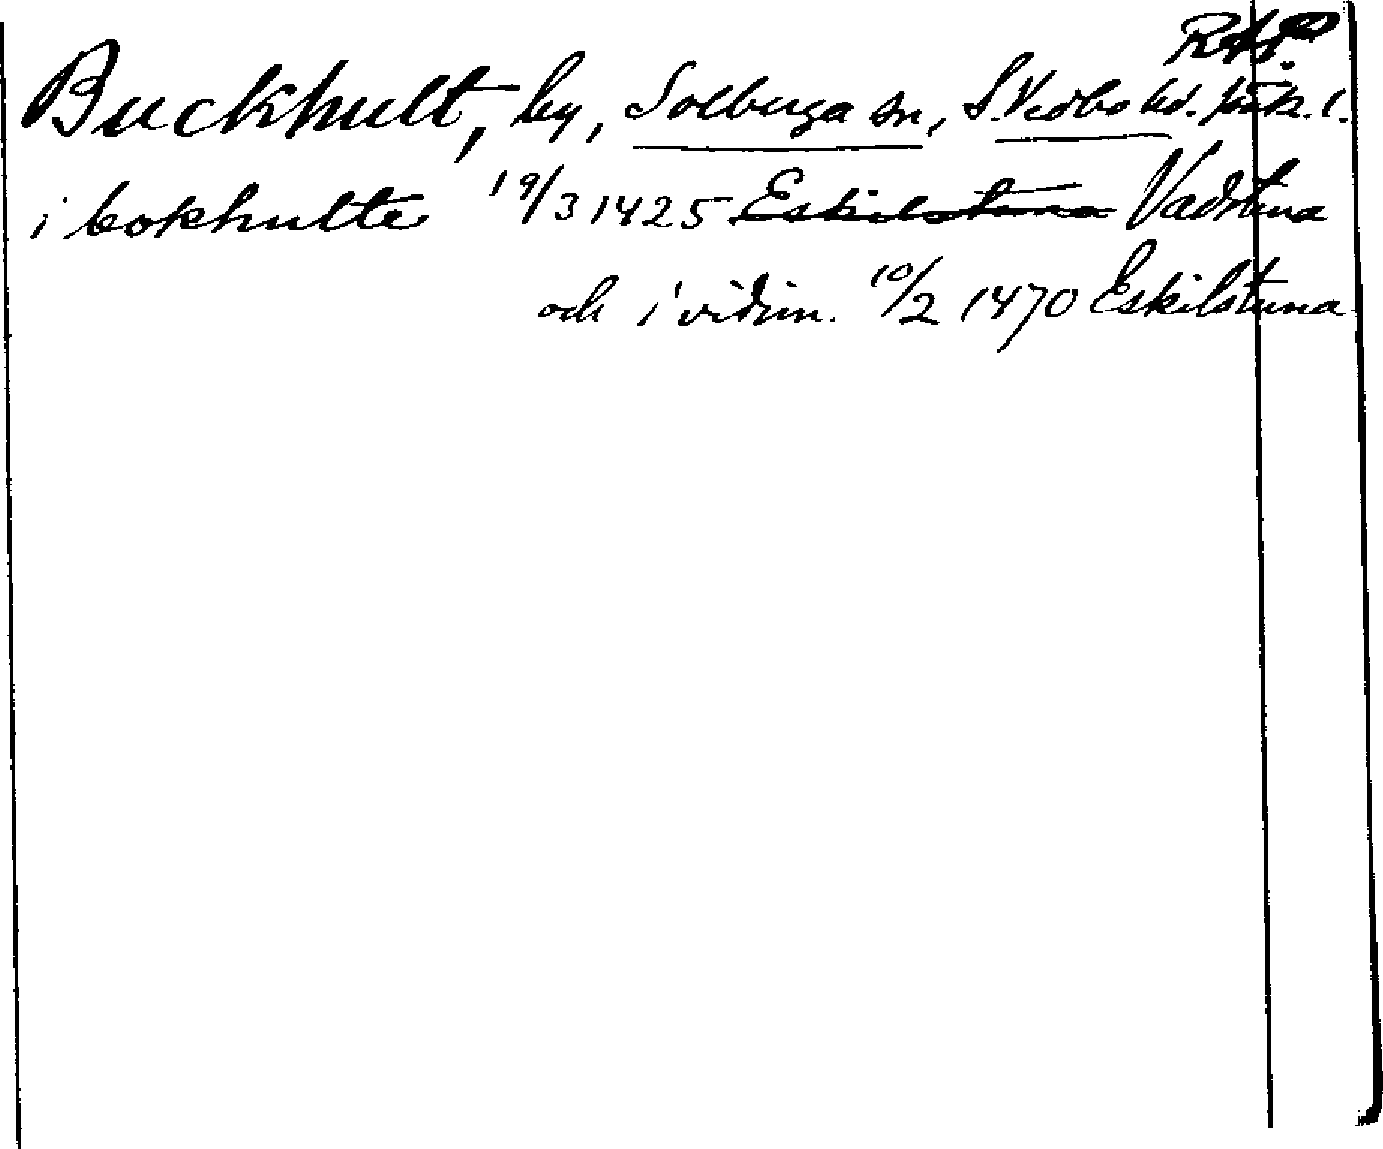 RAp.
Buckhult, by, Solberga sn, S. Vedbo hd. Jönk. l.
i bokhulte 19/3 1425 Eskilstuna Vadstena
och i vidim. 10/2 1470 Eskilstuna